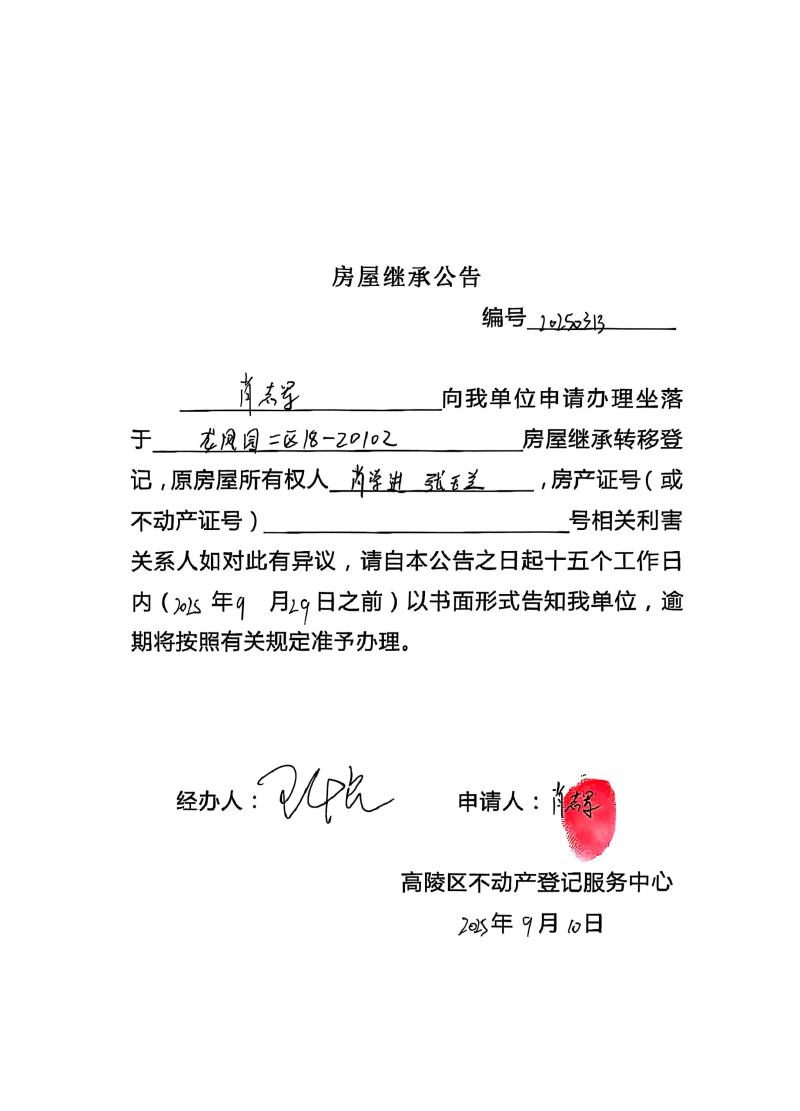 房屋继承公告
编号 20250313
肖志军 向我单位申请办理坐落
于 龙凤园二区18-20102 房屋继承转移登
记，原房屋所有权人 肖学进 张玉兰 ，房产证号（或
不动产证号） 号相关利害
关系人如对此有异议，请自本公告之日起十五个工作日
内（2025 年9 月29日之前）以书面形式告知我单位，逾
期将按照有关规定准予办理。
经办人： 申请人：肖志军
高陵区不动产登记服务中心
2025年 9月 10日